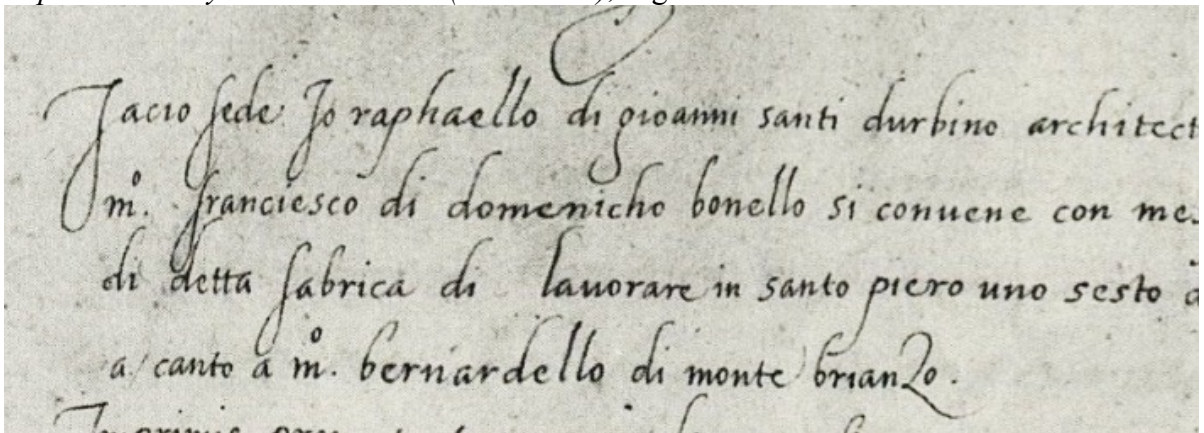 Facio fede Io raphaello di gioanni santi durbino architect
m°. franciesco di domenicho bonello si conuene con mes
di detta fabrica di lauorare in santo piero uno sesto a
a canto a m°. bernardello di monte brianzo.